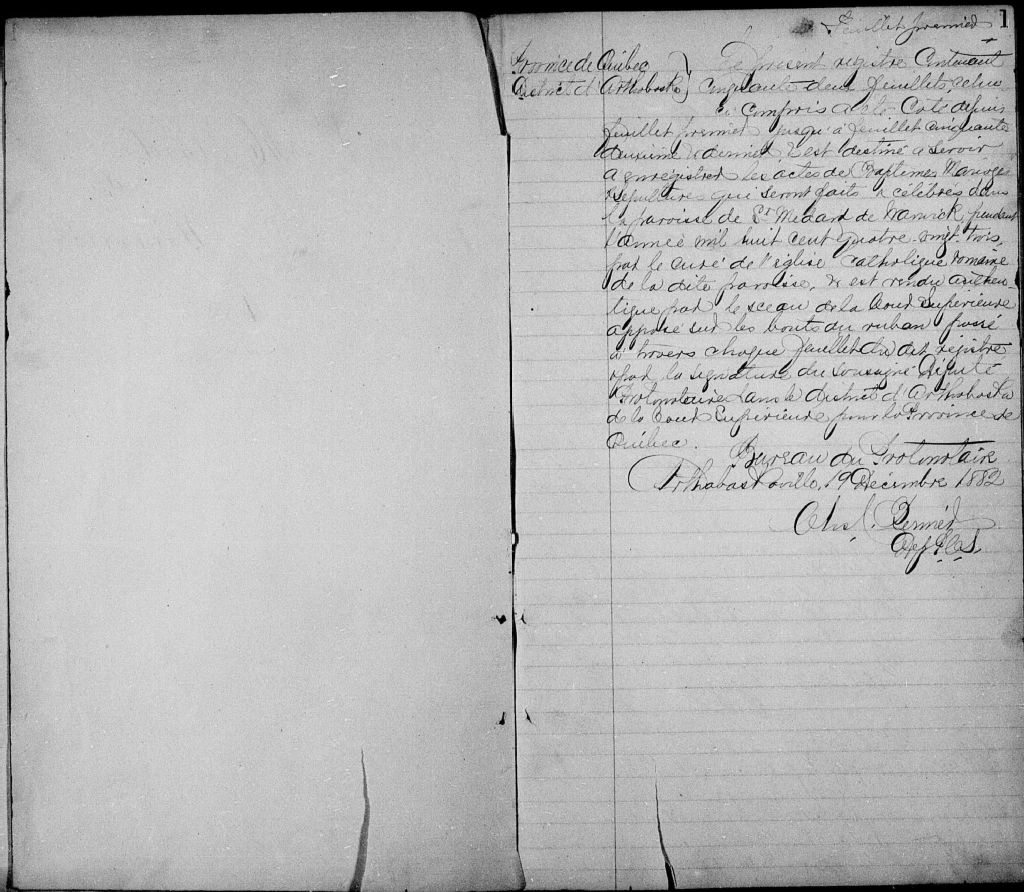 1
Feuillet premier
Province de Québec } Le present registre Contenant
District d'Arthabaska } Cinquante deux feuillets, celui
Ci compris a la Cote depuis
feuillet premier jusqu'à feuillet cinquante
deuxieme & dernier & est destiné a servir
a enregistrer les actes de Baptemes Mariages
& Sepultures qui seront faits & célébrés dans
la paroisse de St Medard de Warwick, pendant
l'année mil huit cent quatre-vingt-trois,
par le curé de l'église Catholique romaine
de la dite paroisse, & est rendu authen-
tique par le sceau de la Cour Supérieure
apposé sur les bouts du ruban passé
à travers chaque feuillet du dit registre
& par la signature du Soussigné Député
Protonotaire dans le district d'Arthabaska
de la Cour Supérieure pour la Province de
Québec.
Bureau du Protonotaire
Arthabaskaville, 19 Décembre 1882
Bernier
Dep P.C.S.